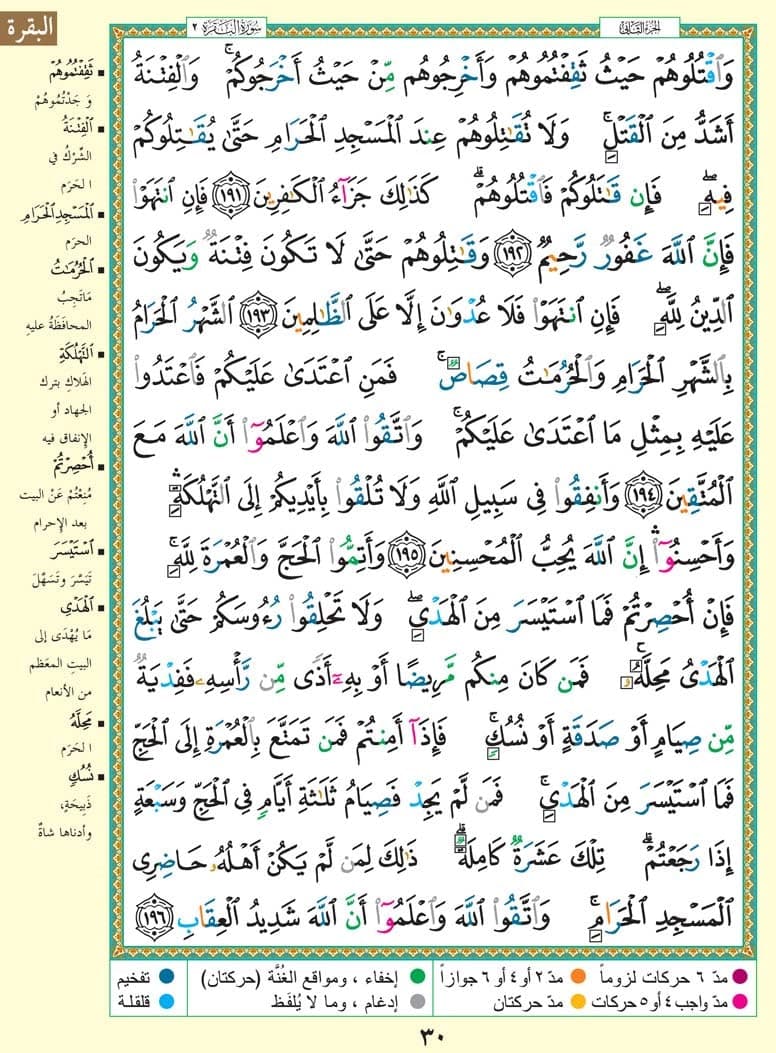 البقرة
الجزء الثاني
سورة البقرة ٢
وَٱقْتُلُوهُمْ حَيْثُ ثَقِفْتُمُوهُمْ وَأَخْرِجُوهُم مِّنْ حَيْثُ أَخْرَجُوكُمْ ۚ وَٱلْفِتْنَةُ
أَشَدُّ مِنَ ٱلْقَتْلِ ۚ وَلَا تُقَٰتِلُوهُمْ عِندَ ٱلْمَسْجِدِ ٱلْحَرَامِ حَتَّىٰ يُقَٰتِلُوكُمْ
فِيهِ ۖ فَإِن قَٰتَلُوكُمْ فَٱقْتُلُوهُمْ ۗ كَذَٰلِكَ جَزَآءُ ٱلْكَٰفِرِينَ ﴿١٩١﴾ فَإِنِ ٱنتَهَوْا۟
فَإِنَّ ٱللَّهَ غَفُورٌ رَّحِيمٌ ﴿١٩٢﴾ وَقَٰتِلُوهُمْ حَتَّىٰ لَا تَكُونَ فِتْنَةٌ وَيَكُونَ
ٱلدِّينُ لِلَّهِ ۖ فَإِنِ ٱنتَهَوْا۟ فَلَا عُدْوَٰنَ إِلَّا عَلَى ٱلظَّٰلِمِينَ ﴿١٩٣﴾ ٱلشَّهْرُ ٱلْحَرَامُ
بِٱلشَّهْرِ ٱلْحَرَامِ وَٱلْحُرُمَٰتُ قِصَاصٌ ۚ فَمَنِ ٱعْتَدَىٰ عَلَيْكُمْ فَٱعْتَدُوا۟
عَلَيْهِ بِمِثْلِ مَا ٱعْتَدَىٰ عَلَيْكُمْ ۚ وَٱتَّقُوا۟ ٱللَّهَ وَٱعْلَمُوٓا۟ أَنَّ ٱللَّهَ مَعَ
ٱلْمُتَّقِينَ ﴿١٩٤﴾ وَأَنفِقُوا۟ فِى سَبِيلِ ٱللَّهِ وَلَا تُلْقُوا۟ بِأَيْدِيكُمْ إِلَى ٱلتَّهْلُكَةِ ۛ
وَأَحْسِنُوٓا۟ ۛ إِنَّ ٱللَّهَ يُحِبُّ ٱلْمُحْسِنِينَ ﴿١٩٥﴾ وَأَتِمُّوا۟ ٱلْحَجَّ وَٱلْعُمْرَةَ لِلَّهِ ۚ
فَإِنْ أُحْصِرْتُمْ فَمَا ٱسْتَيْسَرَ مِنَ ٱلْهَدْىِ ۖ وَلَا تَحْلِقُوا۟ رُءُوسَكُمْ حَتَّىٰ يَبْلُغَ
ٱلْهَدْىُ مَحِلَّهُۥ ۚ فَمَن كَانَ مِنكُم مَّرِيضًا أَوْ بِهِۦٓ أَذًى مِّن رَّأْسِهِۦ فَفِدْيَةٌ
مِّن صِيَامٍ أَوْ صَدَقَةٍ أَوْ نُسُكٍ ۚ فَإِذَآ أَمِنتُمْ فَمَن تَمَتَّعَ بِٱلْعُمْرَةِ إِلَى ٱلْحَجِّ
فَمَا ٱسْتَيْسَرَ مِنَ ٱلْهَدْىِ ۚ فَمَن لَّمْ يَجِدْ فَصِيَامُ ثَلَٰثَةِ أَيَّامٍ فِى ٱلْحَجِّ وَسَبْعَةٍ
إِذَا رَجَعْتُمْ ۗ تِلْكَ عَشَرَةٌ كَامِلَةٌ ۗ ذَٰلِكَ لِمَن لَّمْ يَكُنْ أَهْلُهُۥ حَاضِرِى
ٱلْمَسْجِدِ ٱلْحَرَامِ ۚ وَٱتَّقُوا۟ ٱللَّهَ وَٱعْلَمُوٓا۟ أَنَّ ٱللَّهَ شَدِيدُ ٱلْعِقَابِ ﴿١٩٦﴾
ثَقِفْتُمُوهُمْ
وَجَدْتُمُوهُمْ
ٱلْفِتْنَةُ
الشِّرْكُ في
الحَرَم
ٱلْمَسْجِدِ ٱلْحَرَامِ
الحرَم
ٱلْحُرُمَٰتُ
مَا تَجِبُ
المحافَظَةُ عليه
ٱلتَّهْلُكَةِ
الهَلاكِ بترك
الجهاد أو
الإنفاق فيه
أُحْصِرْتُمْ
مُنِعْتُمْ عَنْ البيت
بعد الإحرام
ٱسْتَيْسَرَ
تَيَسَّرَ وتَسَهَّلَ
ٱلْهَدْىِ
مَا يُهْدَى إلى
البيت المعَظم
من الأنعام
مَحِلَّهُ
الحَرَم
نُسُكٍ
ذَبِيحَةٍ،
وأدناها شاةٌ
مدّ ٦ حركات لزوماً
مدّ ٢ أو ٤ أو ٦ جوازاً
إخفاء ، ومواقع الغُنَّة (حركتان)
تفخيم
مدّ واجب ٤ أو ٥ حركات
مدّ حركتان
إدغام ، وما لا يُلفَظ
قلقلة
٣٠